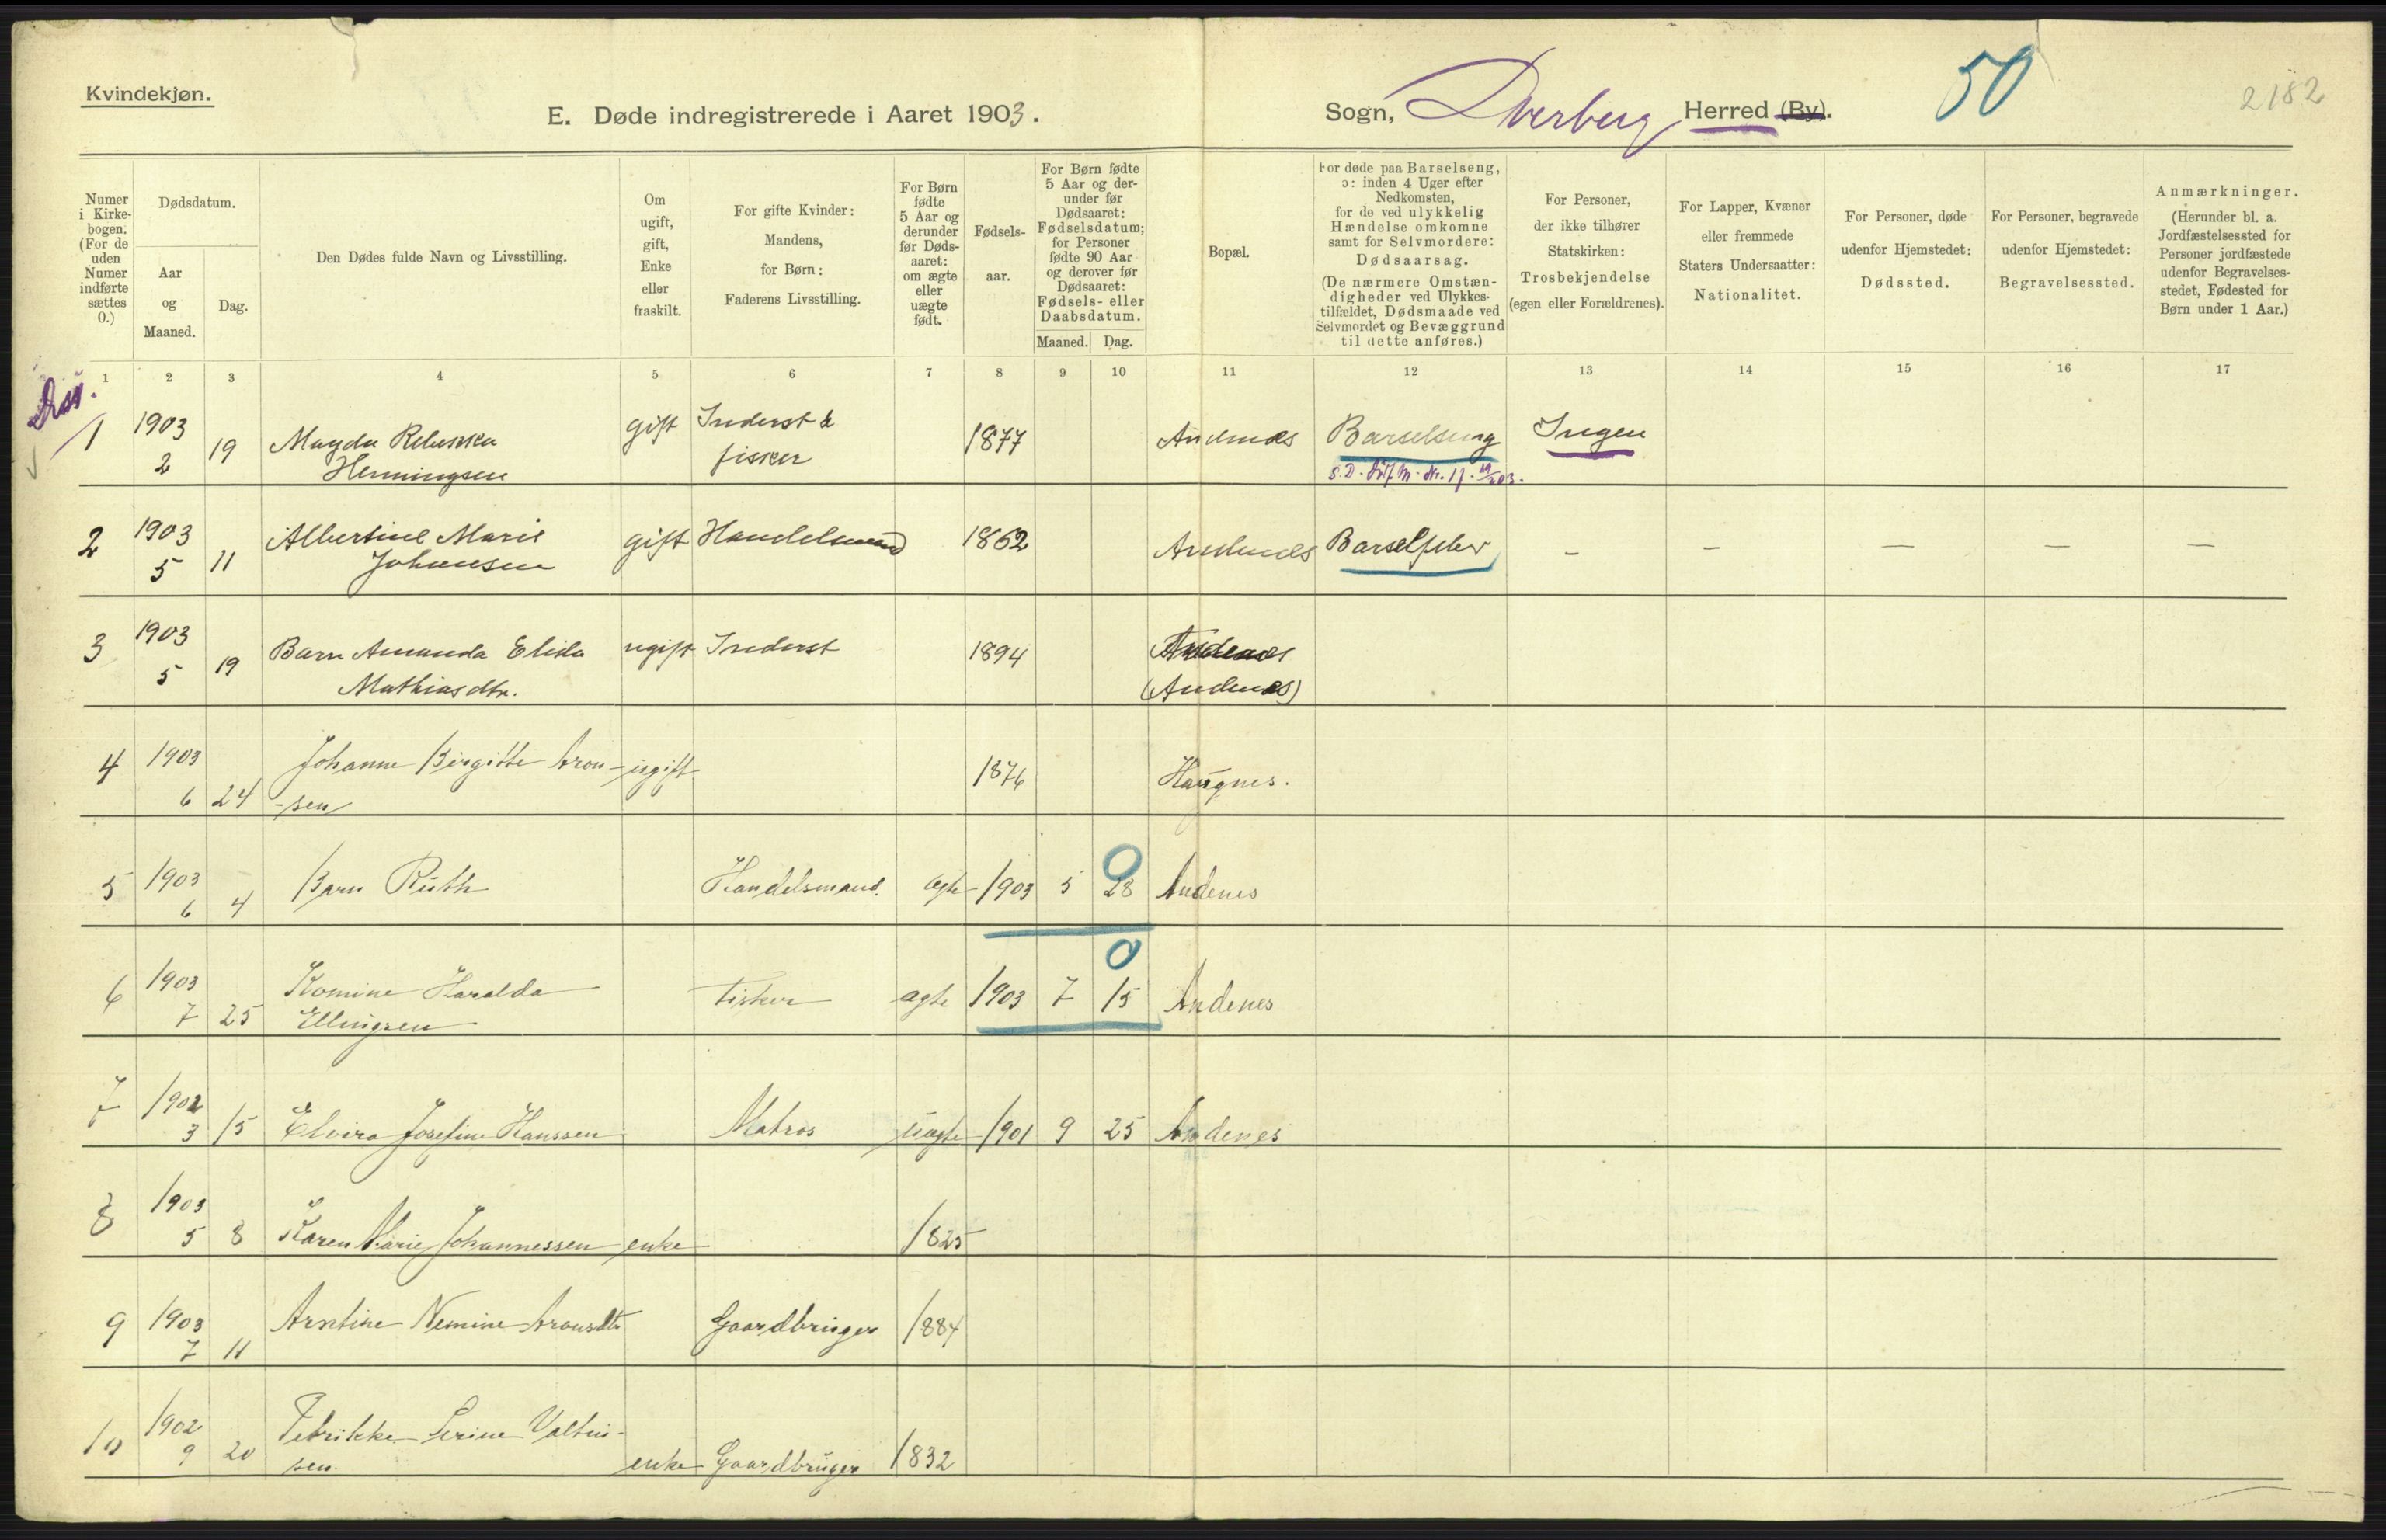 Kvindekjøn.
E. Døde indregistrerede i Aaret 1903.
Sogn, Dverberg Herred (By).
50
2182
Numer i Kirkebogen. (For de uden Numer indførte sættes 0.)
Dødsdatum.
Aar og Maaned.
Dag.
Den Dødes fulde Navn og Livsstilling.
Om ugift, gift, Enke eller fraskilt.
For gifte Kvinder: Mandens, for Børn: Faderens Livsstilling.
For Børn fødte 5 Aar og derunder før Dødsaaret: om ægte eller uægte født.
Fødselsaar.
For Børn fødte 5 Aar og derunder før Dødsaaret: Fødselsdatum; for Personer fødte 90 Aar og derover før Dødsaaret: Fødsels- eller Daabsdatum.
Maaned. Dag.
Bopæl.
For døde paa Barselseng, ɔ: inden 4 Uger efter Nedkomsten, for de ved ulykkelig Hændelse omkomne samt for Selvmordere: Dødsaarsag.
(De nærmere Omstændigheder ved Ulykkestilfældet, Dødsmaade ved Selvmordet og Bevæggrund til dette anføres.)
For Personer, der ikke tilhører Statskirken: Trosbekjendelse (egen eller Forældrenes).
For Lapper, Kvæner eller fremmede Staters Undersaatter: Nationalitet.
For Personer, døde udenfor Hjemstedet: Dødssted.
For Personer, begravede udenfor Hjemstedet: Begravelsessted.
Anmærkninger.
(Herunder bl. a. Jordfæstelsessted for Personer jordfæstede udenfor Begravelsesstedet, Fødested for Børn under 1 Aar.)
1 2 3 4 5 6 7 8 9 10 11 12 13 14 15 16 17
Diss.
1 1903 2 19 Magda Rebekka Henningsen gift Inderst & fisker 1877 Andenes Barselseng Ingen
2 1903 5 11 Albertine Marie Johansen gift Handelsmand 1862 Andenes Barselfeber – – – – –
3 1903 5 19 Barn Amanda Elida Mathiasdtr. ugift Inderst 1894 Andenes (Andenes)
4 1903 6 24 Johanne Birgitte Aron-sen ugift 1876 Haugnes.
5 1903 6 4 Barn Ruth Handelsmand. ægte 1903 5 28 0 Andenes
6 1903 7 25 Romine Haralda Ellingsen Fisker ægte 1903 7 15 0 Andenes
7 1902 3 15 Elvira Josefine Hanssen Matros uægte 1901 9 25 Andenes
8 1903 5 8 Karen Marie Johannessen enke 1825
9 1903 7 11 Arntine Nemine Aronsdtr Gaardbruger 1884
10 1902 9 20 Petrikke Serine Valtin-sen enke Gaardbruger 1832